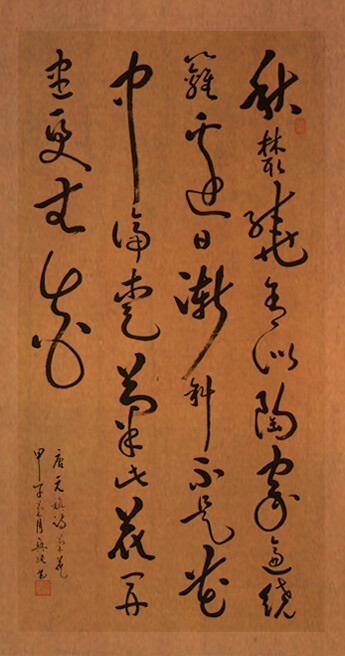 秋叢繞舍似陶家遍繞
籬邊日漸斜不是花
中偏愛菊此花開
盡更無花
唐元稹詩菊花
甲子月書